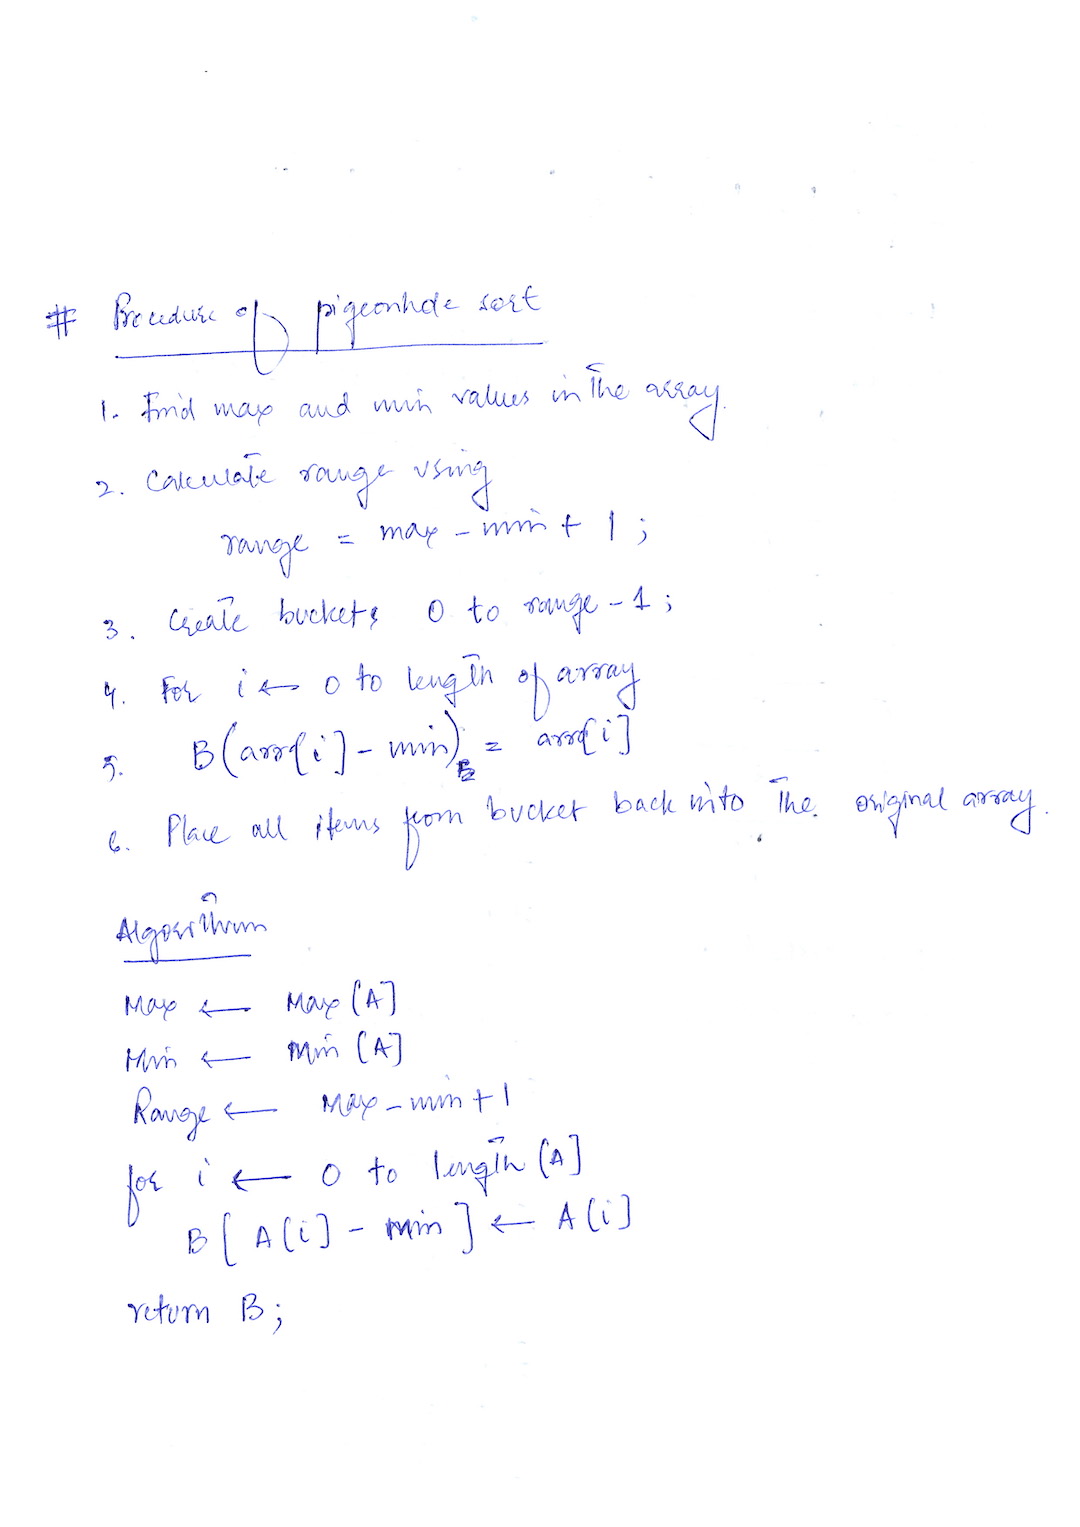 # Procedure of pigeonhole sort
1. Find max and min values in the array.
2. Calculate range using
range = max - min + 1 ;
3. Create buckets 0 to range - 1 ;
4. For i ← 0 to length of array
5. B(arr[i] - min) = arr[i]
6. Place all items from bucket back into the original array.
Algorithm
Max ← Max [A]
Min ← Min [A]
Range ← Max - min + 1
for i ← 0 to length [A]
B [ A[i] - min ] ← A[i]
return B ;